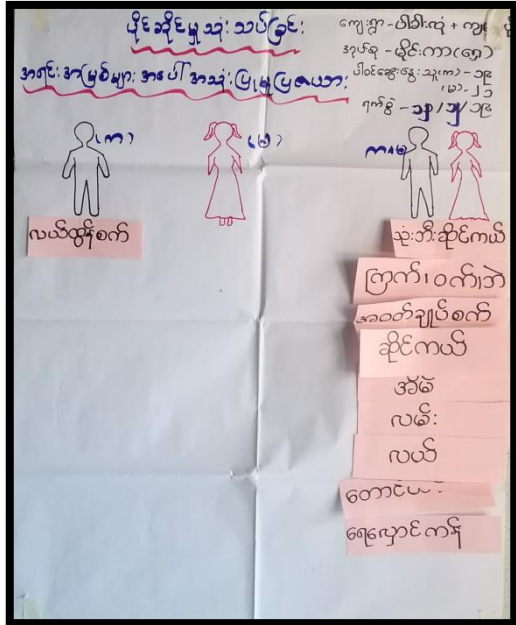 ပိုင်ဆိုင်မှုသုံးသပ်ခြင်း
အရင်းအမြစ်များအပေါ်အသုံးပြုမှုပြဇယား
ကျေးရွာ - ပါခါးထုံ + ကျ
အုပ်စု - မိုင်းကာ(ရှေ့)
ပါဝင်ဆွေးနွေးသူ(ကာ) - ၁၉
(မ) - ၂၁
ရက်စွဲ -
(ကာ)
(မ)
ကာ+မ
လယ်ထွန်စက်
သုံးဘီးဆိုင်ကယ်
ကြက်၊ဝက်၊ဘဲ
အဝတ်ချုပ်စက်
ဆိုင်ကယ်
အိမ်
လမ်း
လယ်
တောင်ယာ
ရေလှောင်ကန်